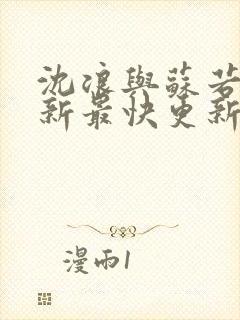 沈浪與蘇若
新最快更新
漫雨1